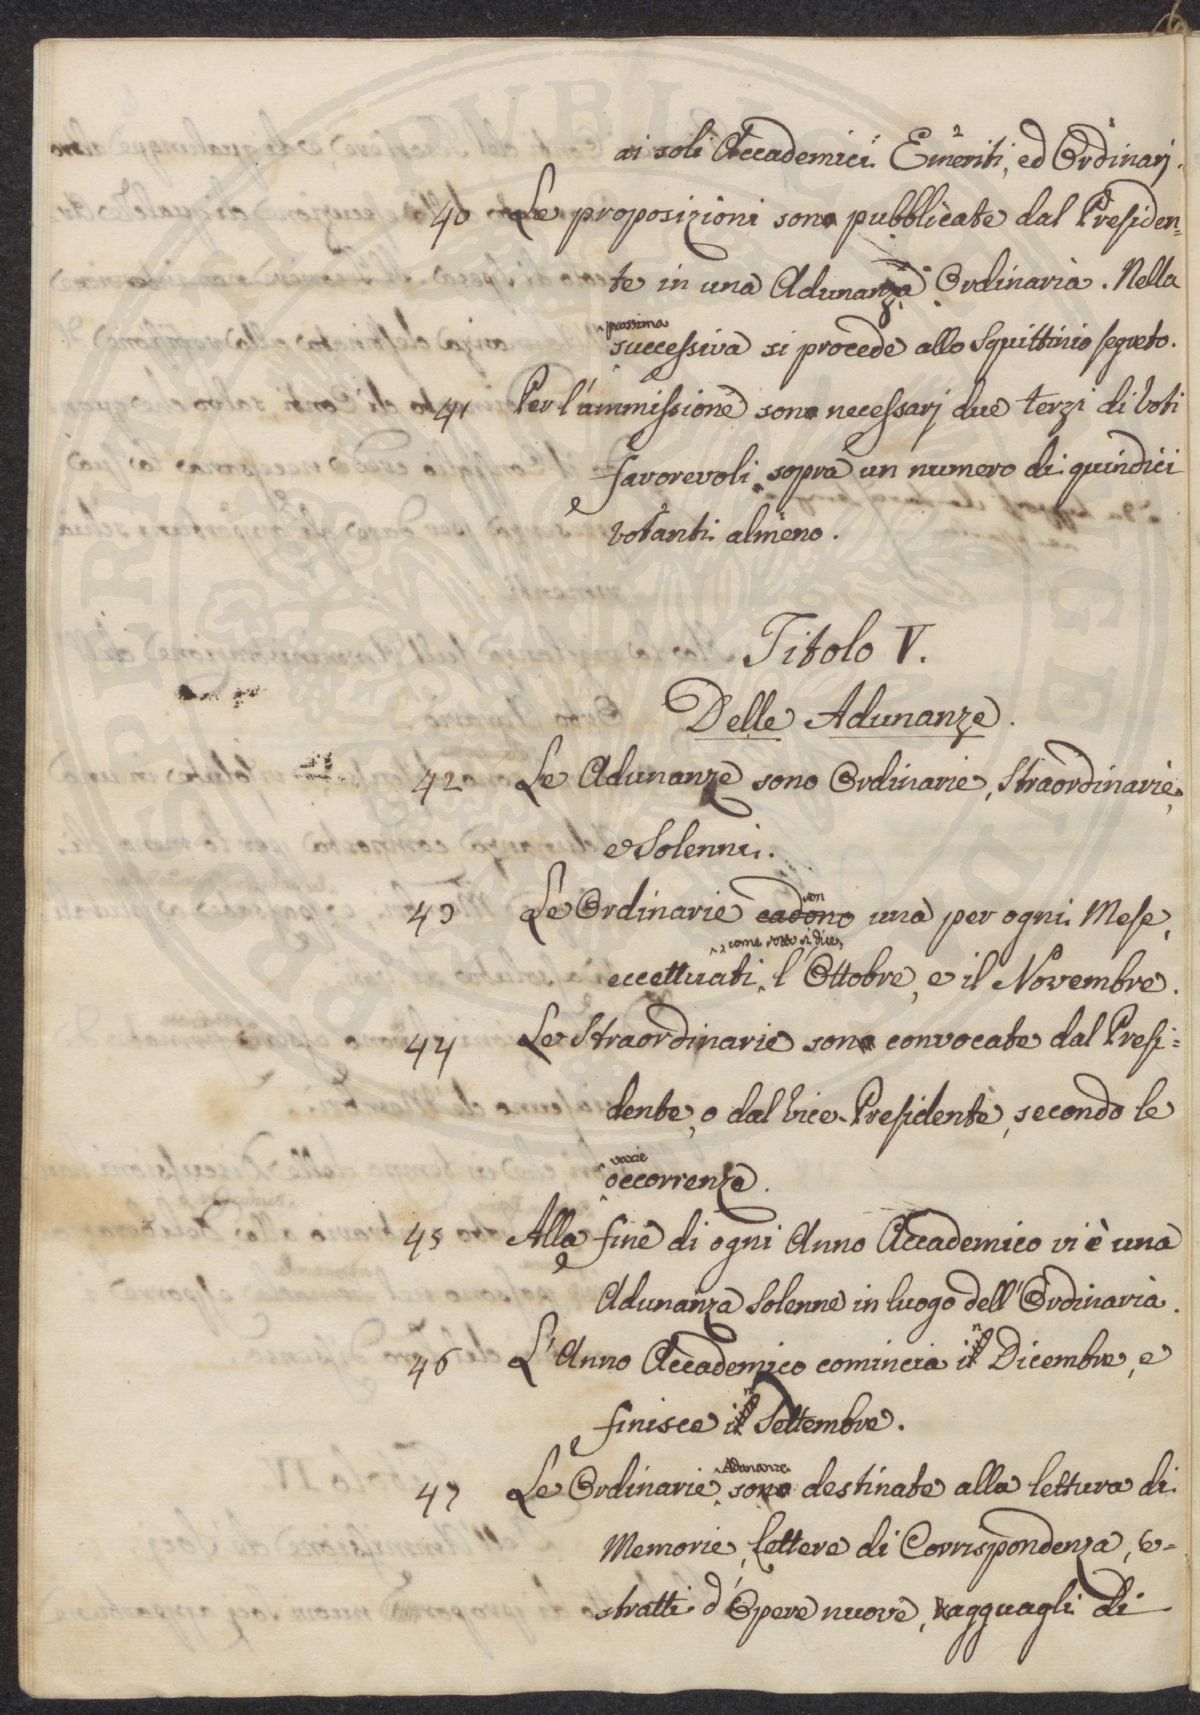 ai soli Accademici Emeriti, ed Ordinarj.
40 Le proposizioni sono pubblicate dal Presiden=
te in una Adunanza Ordinaria. Nella
prossima
successiva si procede allo Squittinio segreto.
41 Per l'ammissione sono necessarj due terzi di Voti
favorevoli sopra un numero di quindici
votanti almeno.
Titolo V.
Delle Adunanze.
42 Le Adunanze sono Ordinarie, Straordinarie,
e Solenni.
son
43 Le Ordinarie cadono una per ogni Mese,
come sotto si dice,
eccettuati l'Ottobre, e il Novembre.
44 Le Straordinarie sono convocate dal Presi=
dente, o dal Vice-Presidente, secondo le
varie
occorrenze.
45 Alla fine di ogni Anno Accademico vi è una
Adunanza Solenne in luogo dell'Ordinaria.
46 L'Anno Accademico comincia in Dicembre, e
finisce in Settembre.
Adunanze
47 Le Ordinarie sono destinate alla lettura di
Memorie, Lettere di Corrispondenza, e=
stratti d'Opere nuove, ragguagli di